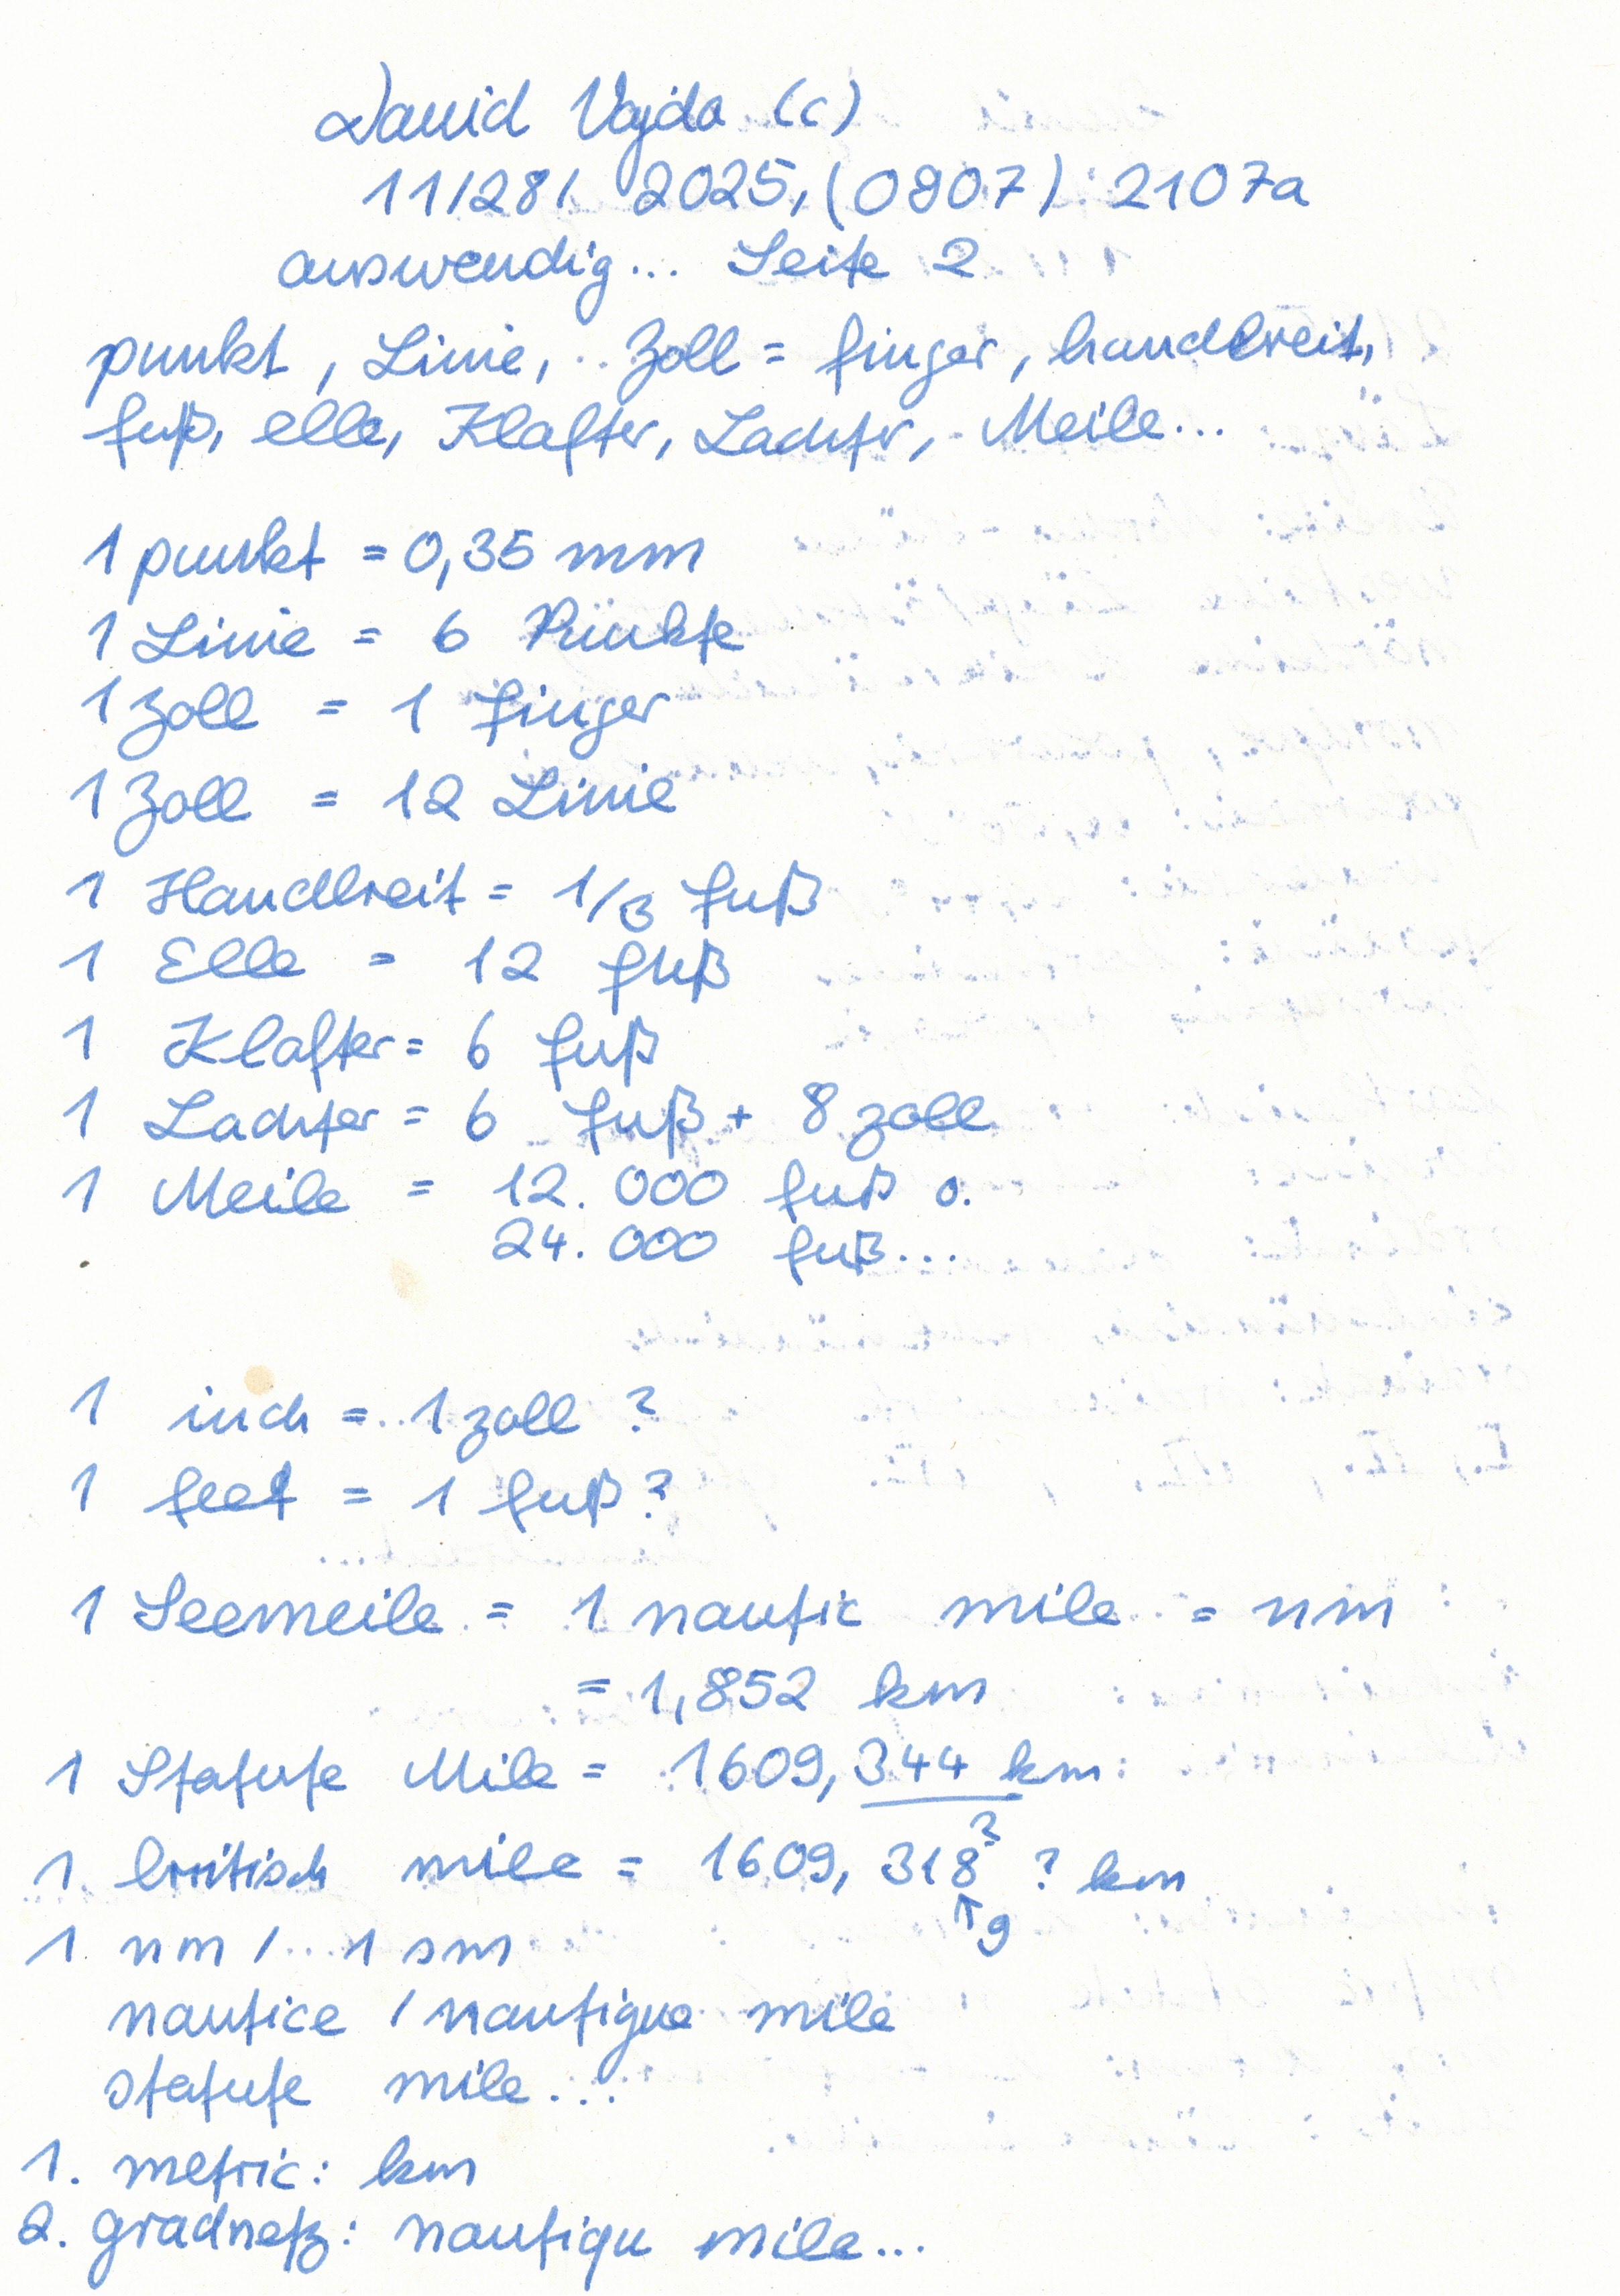 David Vajda (c)
11/28/ 2025, (0807) 2107a
auswendig... Seite 2
punkt, Linie, .. Zoll = finger, handbreit,
fuß, elle, Klafter, Lachtr, Meile...
1 punkt = 0,35 mm
1 Linie = 6 Pünkte
1 Zoll = 1 finger
1 Zoll = 12 Linie
1 Handbreit = 1/3 fuß
1 Elle = 12 fuß
1 Klafter = 6 fuß
1 Lachter = 6 fuß + 8 zoll
1 Meile = 12.000 fuß o.
24.000 fuß...
1 inch = .. 1 zoll ?
1 feet = 1 fuß ?
1 Seemeile = 1 nautic mile = nm
= 1,852 km
1 Statute Mile = 1609,344 km
1. britisch mile = 1609, 318? ? km
↑9
1. nm / ... 1 sm
nautice / nautique mile
statute mile...
1. metric: km
2. gradnetz: nautiqu mile...